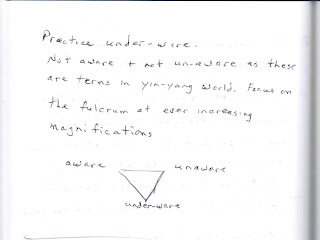 Practice under-ware.
Not aware + not un-aware as these
are terms in yin-yang world. Focus on
the fulcrum at ever increasing
magnifications
aware unaware
under-ware